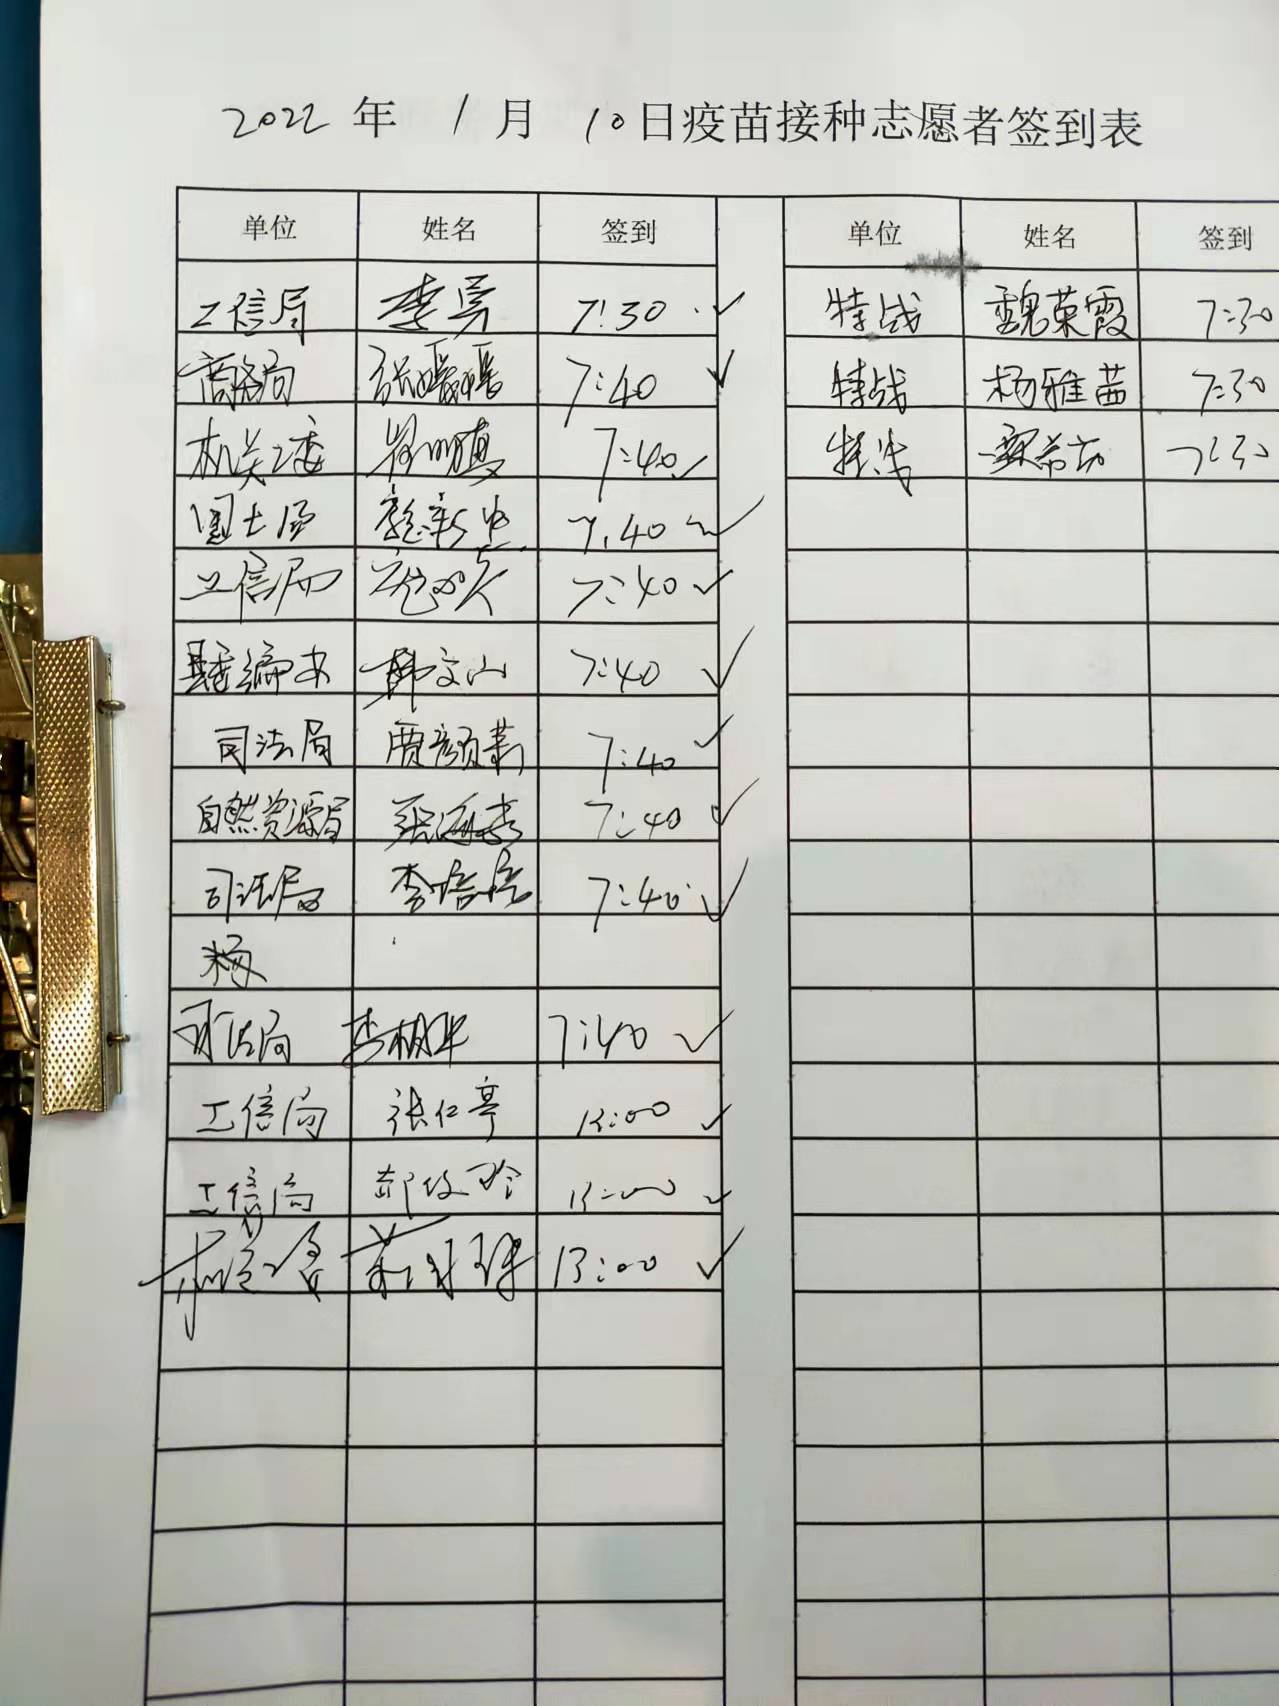 2022 年 1 月 10 日疫苗接种志愿者签到表
单位 姓名 签到 单位 姓名 签到
工信局 李勇 7:30 特战 魏荣霞 7:30
商务局 张 7:40 特战 杨雅茜 7:30
机关工委 7:40 特战 7:30
国土局 7:40
工信局 7:40
县委编办 韩文山 7:40
司法局 贾颜莉 7:40
自然资源局 7:40
司法局 李培培 7:40
杨
司法局 7:40
工信局 张仁亭 13:00
工信局 13:00
13:00